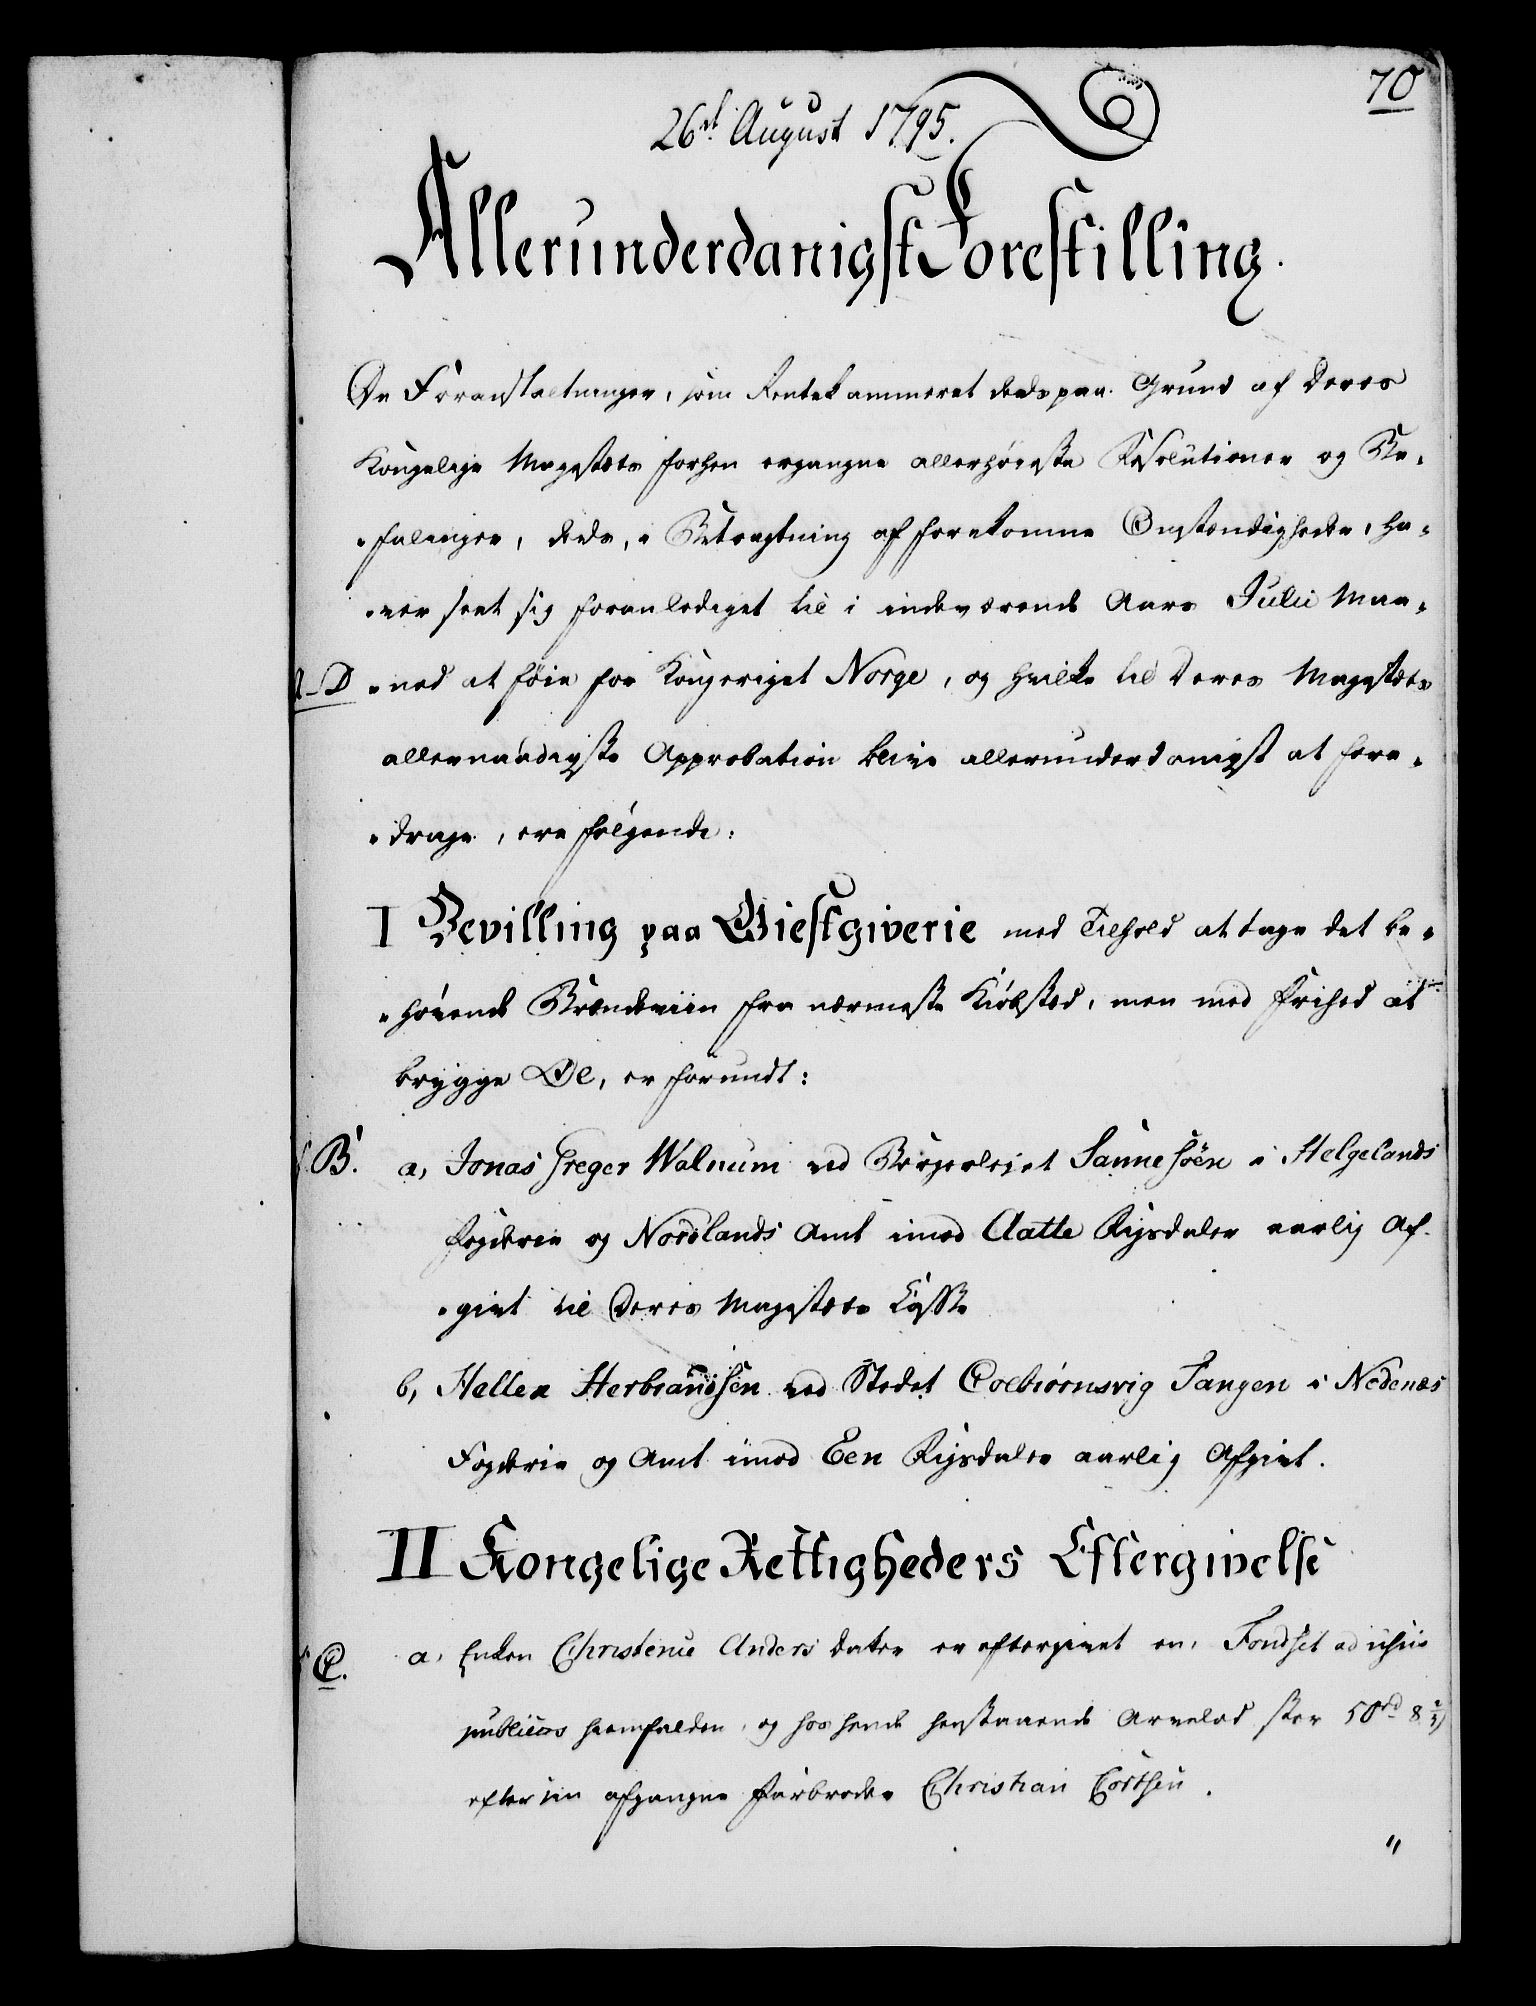 70
26de August 1795.
Allerunderdanigst Forestilling.
De Foranstaltninger, som Rentekammeret deels paa Grund af Deres
Kongelige Majestæts forhen ergangne allerhøieste Resolutioner og Be-
-falinger, deels, i Betragtning af forekomne Omstændigheder, ha-
-ver seet sig foranlediget til i indeværende Aars Julii Maa-
-ned at føie for Kongeriget Norge, og hvilke til Deres Majestæts
allernaadigste Approbation blive allerunderdanigst at fore-
-drage, ere følgende:
I Bevilling paa Giestgiverie med Tilhold at tage det be-
-høvende Brændeviin fra nærmeste Kiøbsted, men med Frihed at
brygge Øl, er forundt:
B. a, Jonas Greger Walnum ved Borgerlejet Sannesøen i Helgelands
Fogderie og Nordlands Amt imod Aatte Rigsdaler aarlig Af-
-givt til Deres Majestæts Casse
b, Hellea Herbrandsen ved Stedet Colbiørnsvig Tangen i Nedenæs
Fogderie og Amt imod Een Rigsdaler aarlig Afgivt.
II Kongelige Rettigheders Eftergivelse
C. a, Enken Christence Andersdatter er eftergivet en, Fondset ad usus
publicos hiemfalden, og hos hende henstaaende Arvelod stor 50rd 8 ß
efter sin afgangne Farbroder Christian Cortsen.